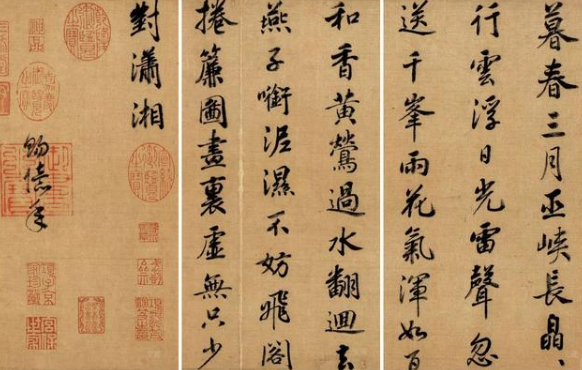 暮春三月巫峽長晶、
行雲浮日光雷聲忽
送千峯雨花氣渾如百
和香黃鶯過水翻迴去
燕子啣泥濕不妨飛閣
捲簾圖畫裏虛無只少
對瀟湘
賜億年